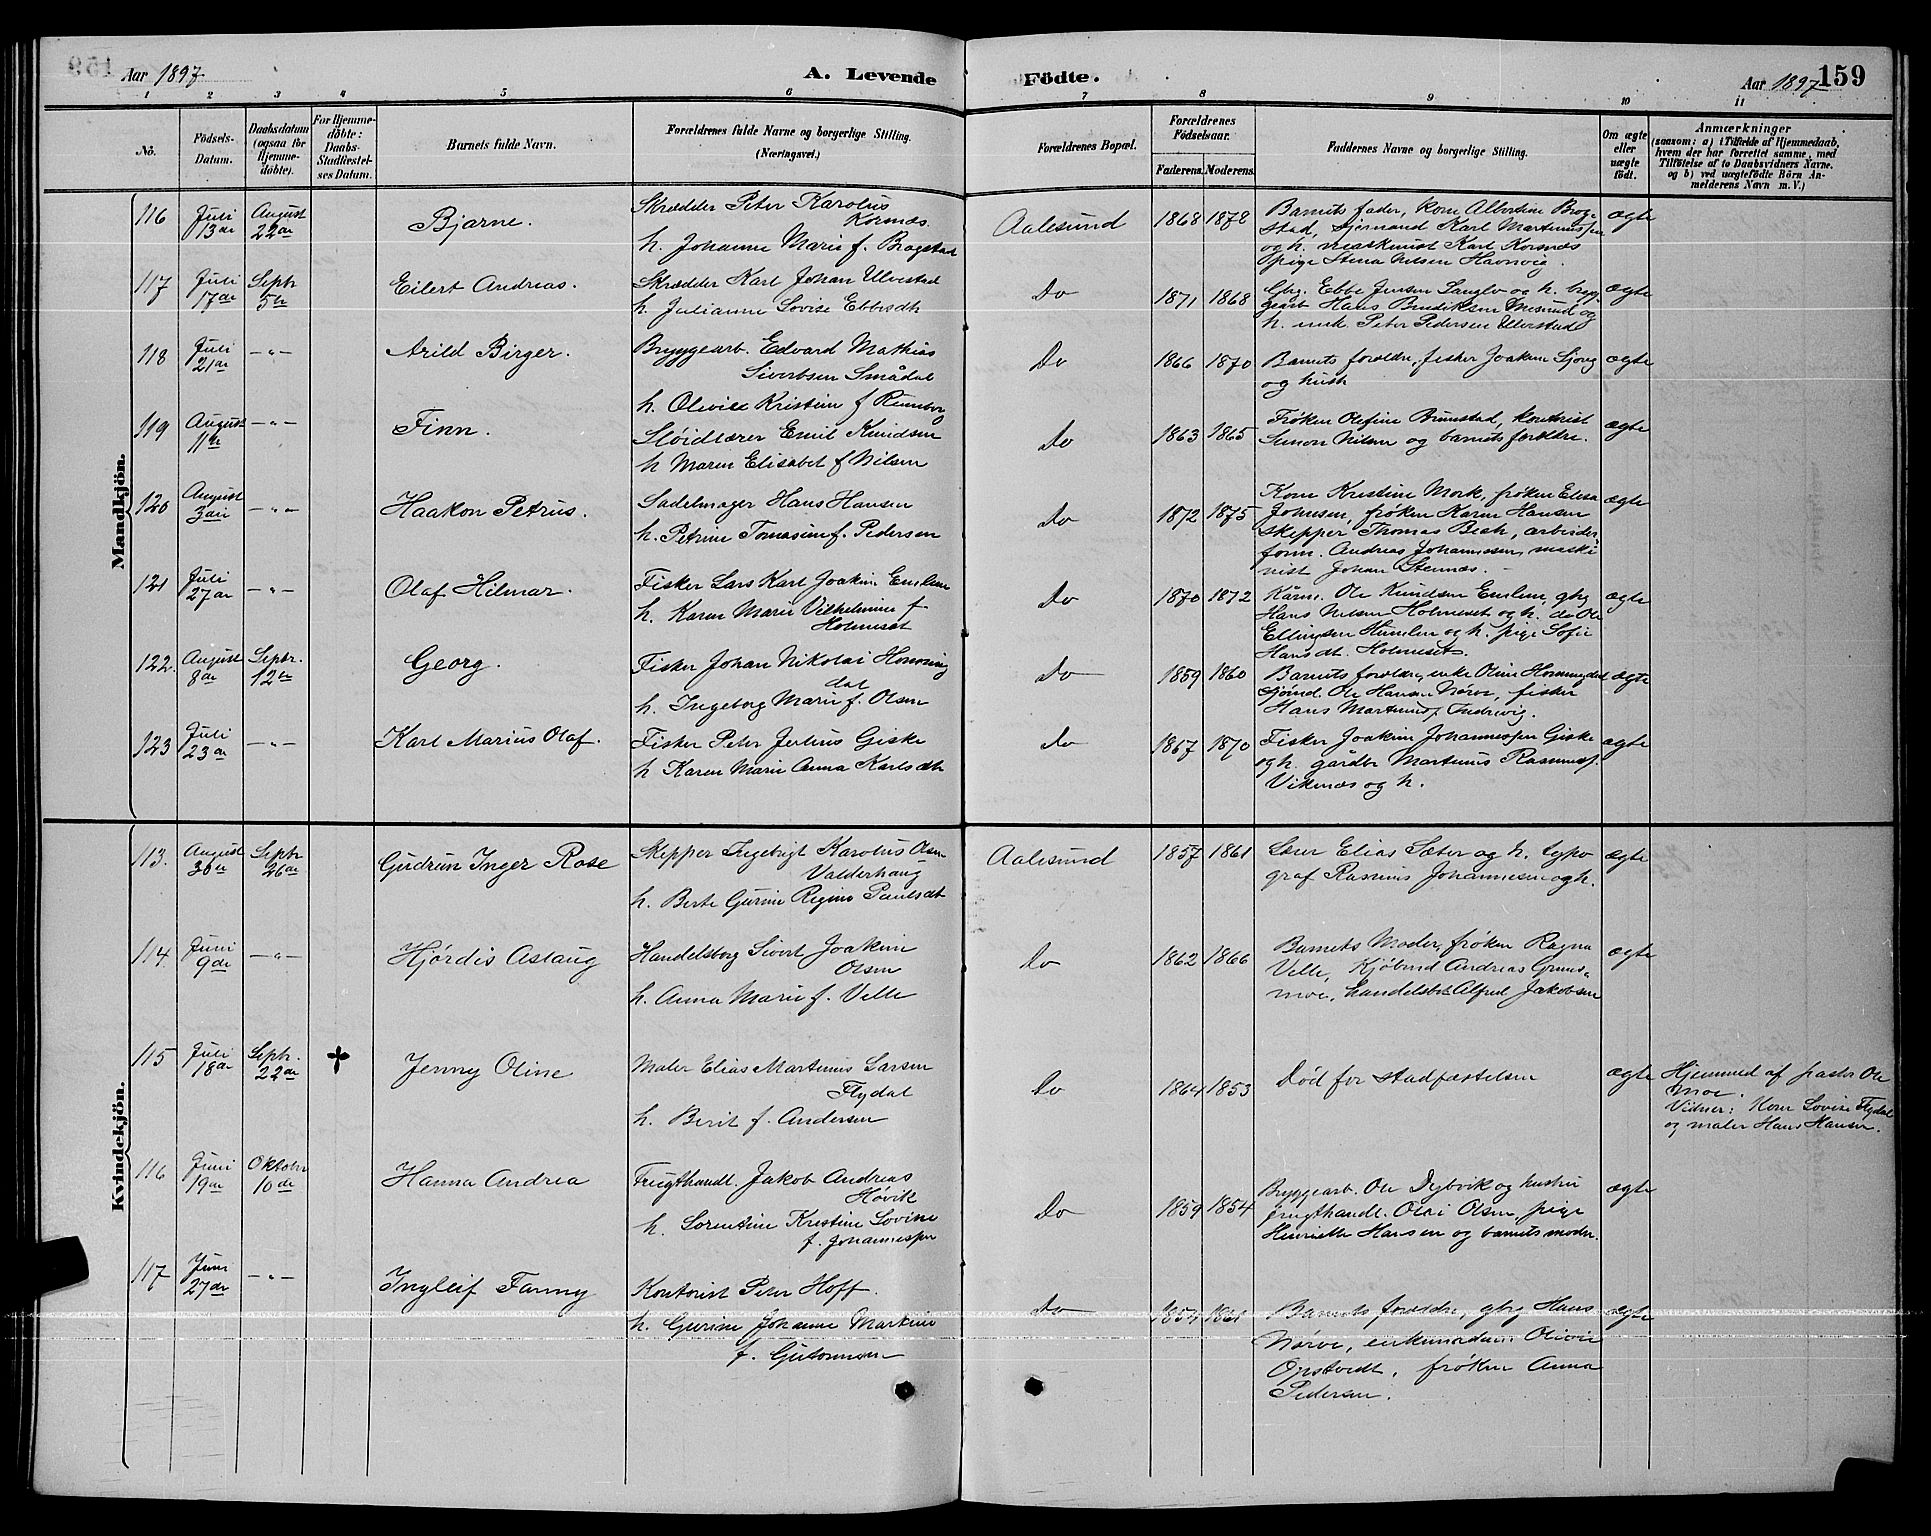 Aar 1897
A. Levende Födte.
Aar 1897
159
1 2 3 4 5 6 7 8 9 10 11
No.
Födsels-
Datum.
Daabsdatum
(ogsaa for
Hjemme-
döbte).
For Hjemme-
döbte:
Daabs-
Stadfæstel-
ses Datum.
Barnets fulde Navn.
Forældrenes fulde Navne og borgerlige Stilling.
(Næringsvei.)
Forældrenes Bopæl.
Forældrenes
Födselsaar.
Faderens. Moderens.
Faddernes Navne og borgerlige Stilling.
Om ægte
eller
uægte
födt.
Anmærkninger
(saasom: a) i Tilfælde af Hjemmedaab,
hvem der har forrettet samme, med
Tilföielse af to Daabsvidners Navne.
og b) ved uægtefödte Börn An-
melderens Navn m. V.)
Mandkjön.
116
Juli
13de
August
22de
Bjarne.
Skrædder Peter Karolus
Korsnæs
h. Johanne Marie f. Brogstad
Aalesund
1868 1878
Barnets fader, kone Albertine Brog-
stad, Styrmand Karl Martinussen
og h. maskinist Karl Korsnæs
pige Stina Nilsen Havsvig.
ægte
117
Juli
17de
Septbr
5te
Eilert Andreas.
Skrædder Karl Johan Ulvestad
h. Julianne Lovise Ebbesdtr
Do
1871 1868
Gbrg. Ebbe Jensen Langlo og h. brygg
gearb Hans Bendiksen og
h. enke Peter Pedersen Ulvestad
ægte
118
Juli
21de
-"-
Arild Birger.
Bryggearb. Edvard Mathias
Sivertsen Smådal
h. Olivie Kristine f.
Do
1866 1870
Barnets foreldre, fisker Joakim
og hust
ægte
119
August
11te
-"-
Finn.
Sløidlærer Emil Knudsen
h. Maren Elisabet f Nilsen
Do
1863 1865
Frøken Olefine Brunstad, kontorist
Simon Nilsen og barnets foreldre.
ægte
120
August
3die
-"-
Haakon Petrus.
Sadelmager Hans Hansen
h. Petrine Tomasine f. Pedersen
Do
1872 1875
Kone Kristine Mork, frøken Elisa
Johnsen, frøken Karen Hansen
skipper Thomas Beck, arbeider-
form. Andreas Johannessen, maski
nist Johan Stennæs.
ægte
121
Juli
27de
-"-
Olaf Hilmar.
Fisker Lars Karl Joakim Emlem
h. Karen Marie Vilhelmine f
Holmeset
Do
1870 1872
Kårm. Ole Knudsen Emlem, gbrg
Hans Nilsen Holmeset og h. do Ole
Ellingsen Humlen og h. pige Sofie
Hansdt. Holmeset.
ægte
122.
August
8de
Septbr.
12te
Georg.
Fisker Johan Nikolai Honning
dal
h. Ingeborg Marie f. Olsen
Do
1859 1860
Barnets foreldre, enke Oline Honningdal
sjømd. Ole Hansen Nørve, fisker
Hans Martinus. Indrevig.
ægte
123
Juli
23de
-"-
Karl Marius Olaf.
Fisker Peter Julius Giske
h Karen Marie Anna Karlsdtr
do
1867 1870
Fisker Joakim Johannessen Giske
og h. gårdbr Martinus Rasmuss.
Viknæs og h.
ægte
Kvindekjön.
113.
August
30te
Septbr
26de
Gudrun Inger Rose
Skipper Ingebrigt Karolus Olsen
Valderhaug
h. Berte Gurine Regine Paulsdt
Aalesund
1857 1861
Lærer Elias Sæter og h. typo
graf Rasmus Johannesen og h.
ægte
114.
Juni
9de
-"-
Hjørdis Aslaug
Handelsborg Sivert Joakim
Olsen
h. Anna Marie f. Velle
Do
1862 1866
Barnets Moder, frøken Ragna
Velle, Kjøbmd Andreas Grims-
moe, handelsbet. Alfred Jakobsen
ægte
115
Juli
18de
Septbr.
22de
✝
Jenny Oline
Maler Elias Martinus Larsen
Flydal
h. Berit f. Andersen
Do
1864 1853
Død før stadfæstelsen
ægte
Hjemmed af pastor Ole
Moe.
Vidner: Kone Lovise Flydal
og maler Hans Hansen.
116
Juni
19de
Oktober
10de
Hanna Andrea
Frugthandl. Jakob Andreas
Høvik
h. Sorentine Kristine Lovine
f. Johannessen
Do
1859 1854
Bryggearb. Ole Dybvik og hustru
frugthandl. Olai Olsen, pige
Henriette Hansen og barnets moder.
ægte
117
Juni
27de
-"-
Ingleif Fanny
Kontorist Peter Hoff.
h. Gurine Johanne Martine
f. Guttormsen
Do
1854 1861
Barnets foreldre, gbrg Hans
Nørve, enkemadam Olivie
Opstvedt, frøken Anna
Pedersen.
ægte